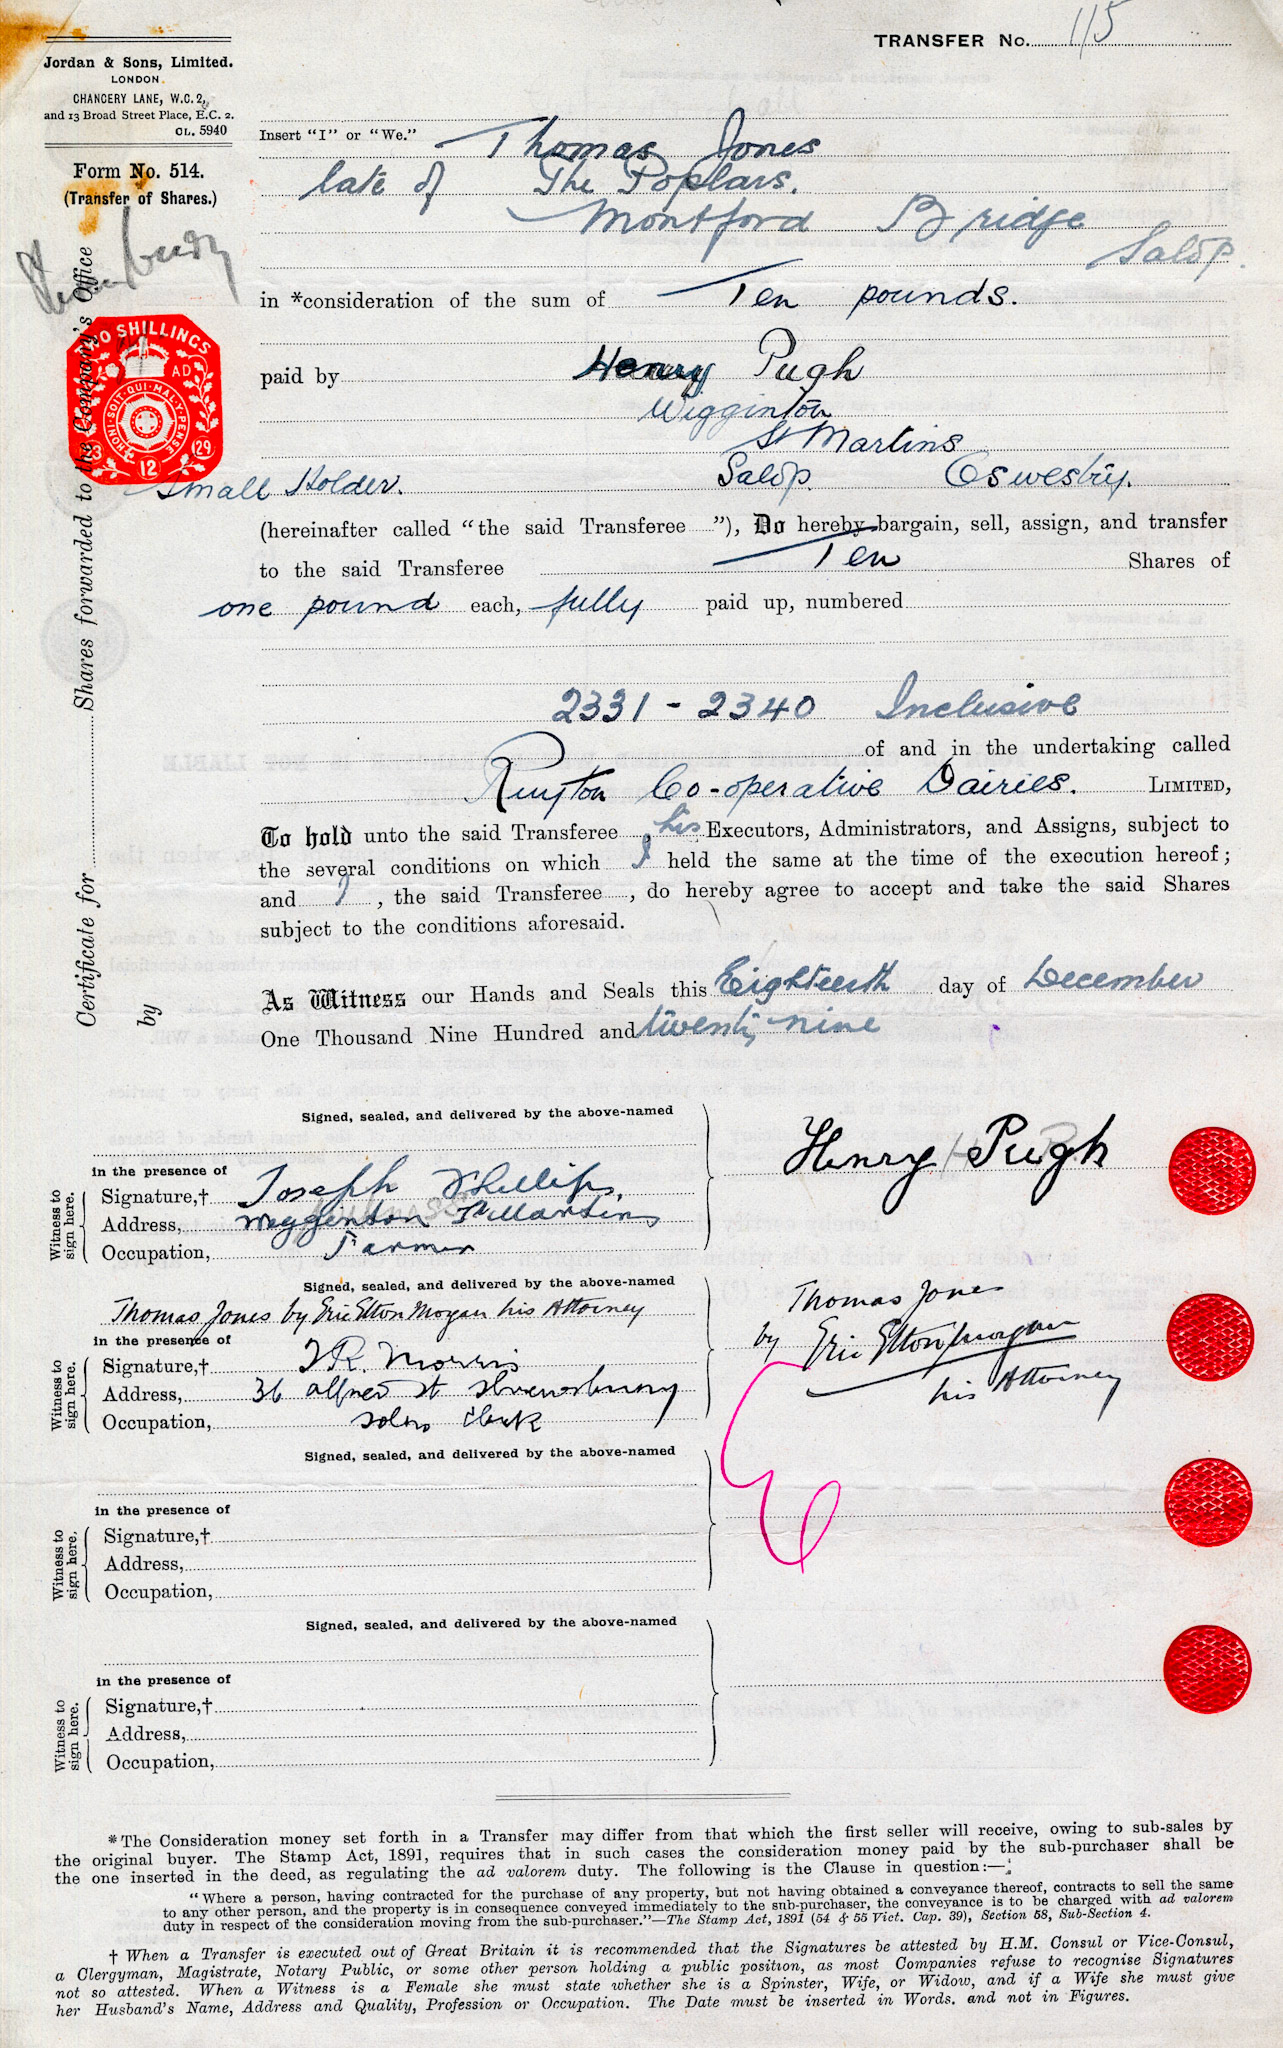 TRANSFER No. 115
Jordan & Sons, Limited.
LONDON
CHANCERY LANE, W.C.2,
and 13 Broad Street Place, E.C. 2.
OL. 5940
Form No. 514.
(Transfer of Shares.)
Insert "I" or "We." Thomas Jones
late of The Poplars.
Montford Bridge
Salop.
in *consideration of the sum of Ten pounds.
TWO SHILLINGS
AD
HONI·SOIT·QUI·MAL·Y·PENSE
12 29
paid by Henry Pugh
Wigginton
St Martins
Small Holder. Salop. Oswestry.
(hereinafter called "the said Transferee "), Do hereby bargain, sell, assign, and transfer
to the said Transferee Ten Shares of
one pound each, fully paid up, numbered
2331 - 2340 Inclusive
of and in the undertaking called
Ruyton Co-operative Dairies. LIMITED,
To hold unto the said Transferee , his Executors, Administrators, and Assigns, subject to
the several conditions on which I held the same at the time of the execution hereof;
and I , the said Transferee , do hereby agree to accept and take the said Shares
subject to the conditions aforesaid.
As Witness our Hands and Seals this Eighteenth day of December
One Thousand Nine Hundred and twenty nine
Certificate for Shares forwarded to the Company's Office
by
Signed, sealed, and delivered by the above-named
Henry Pugh
in the presence of
Witness to sign here.
Signature,† Joseph Phillips,
Address, Wiggenton St Martins
Occupation, Farmer
Signed, sealed, and delivered by the above-named
Thomas Jones by Eric Elton Morgan his Attorney
Thomas Jones
by Eric Elton Morgan
his Attorney
in the presence of
Witness to sign here.
Signature,† Morris
Address, 36 Shrewsbury
Occupation, Solrs Clerk
Signed, sealed, and delivered by the above-named
in the presence of
Witness to sign here.
Signature,†
Address,
Occupation,
Signed, sealed, and delivered by the above-named
in the presence of
Witness to sign here.
Signature,†
Address,
Occupation,
*The Consideration money set forth in a Transfer may differ from that which the first seller will receive, owing to sub-sales by
the original buyer. The Stamp Act, 1891, requires that in such cases the consideration money paid by the sub-purchaser shall be
the one inserted in the deed, as regulating the ad valorem duty. The following is the Clause in question:—
"Where a person, having contracted for the purchase of any property, but not having obtained a conveyance thereof, contracts to sell the same
to any other person, and the property is in consequence conveyed immediately to the sub-purchaser, the conveyance is to be charged with ad valorem
duty in respect of the consideration moving from the sub-purchaser."—The Stamp Act, 1891 (54 & 55 Vict. Cap. 39), Section 58, Sub-Section 4.
† When a Transfer is executed out of Great Britain it is recommended that the Signatures be attested by H.M. Consul or Vice-Consul,
a Clergyman, Magistrate, Notary Public, or some other person holding a public position, as most Companies refuse to recognise Signatures
not so attested. When a Witness is a Female she must state whether she is a Spinster, Wife, or Widow, and if a Wife she must give
her Husband's Name, Address and Quality, Profession or Occupation. The Date must be inserted in Words. and not in Figures.